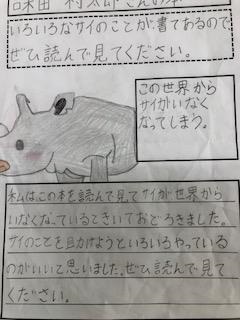 味田 村太郎さんの本
いろいろなサイのことが、書てあるので
ぜひ読んで見てください。
この世界から
サイがいなく
なってしまう。
私は、この本を読んで見てサイが世界から
いなくなっているときいておどろきました。
サイのことを助けようといろいろやっている
のがいいと思いました。ぜひ読んで見て
ください。